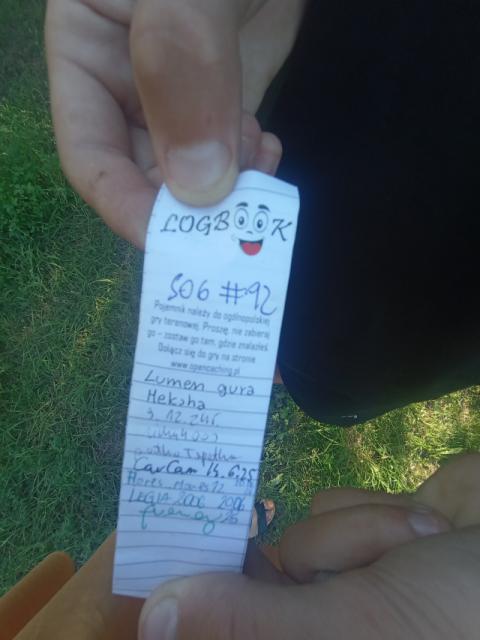 LOGBOOK
SO6 #92
Pojemnik należy do ogólnopolskiej
gry terenowej. Proszę, nie zabieraj
go – zostaw go tam, gdzie znalazłeś.
Dołącz się do gry na stronie
www.opencaching.pl
Lumen gura
Heksha
9.12.24r.
CarCam 14.6.25
LEGIA 2006 2006